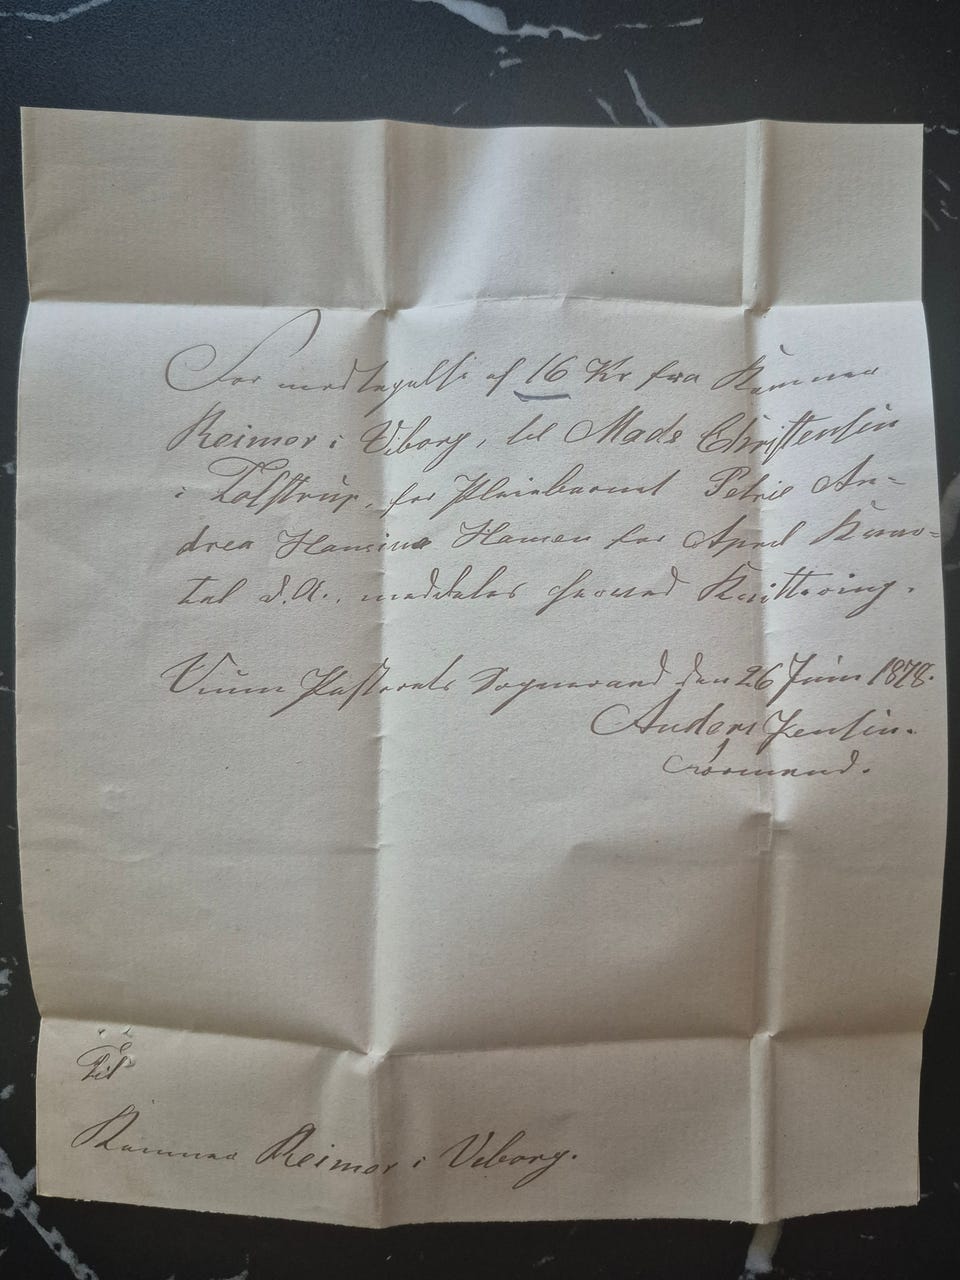 For modtagelse af 16 Kr fra Kæmner
Reimer i Viborg, til Mads Christensen
i Tolstrup, for Pleiebarnet Petrie An-
drea Hansine Hansen for April Kvar-
tal d.A., meddeles herved Kvittering.
Vium Pastorats Sogneraad den 26 Juni 1878.
Anders Jensen.
Formand.
Til
Kæmner Reimer i Viborg.